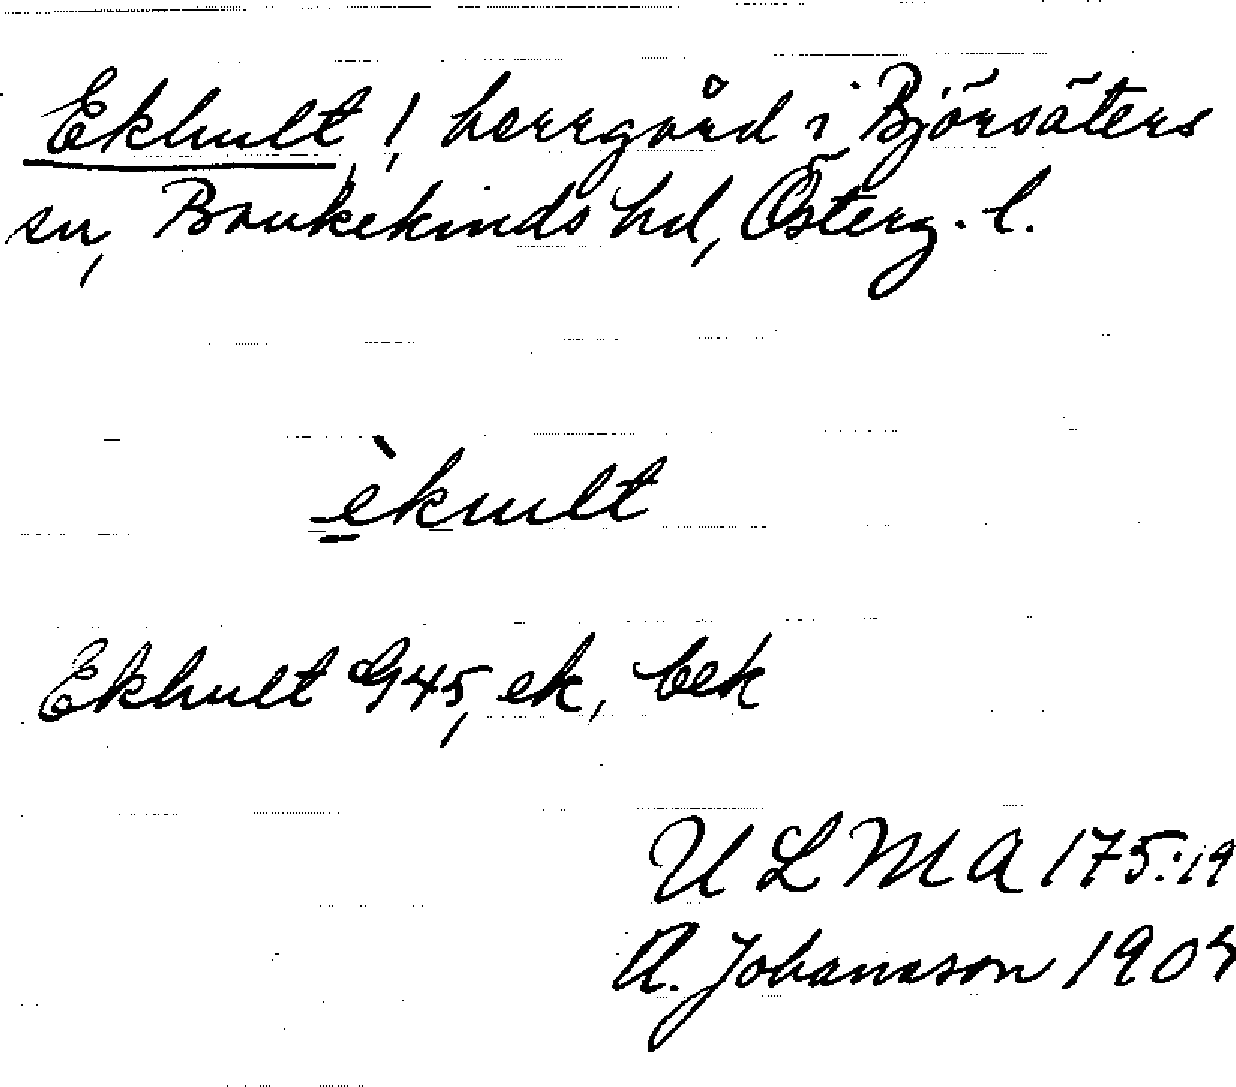 Ekhult, herrgård i Björsäters
sn, Bankekinds hd, Österg. l.
èkult
Ekhult G45, ek, bek
ULMA 175:19
A. Johansson